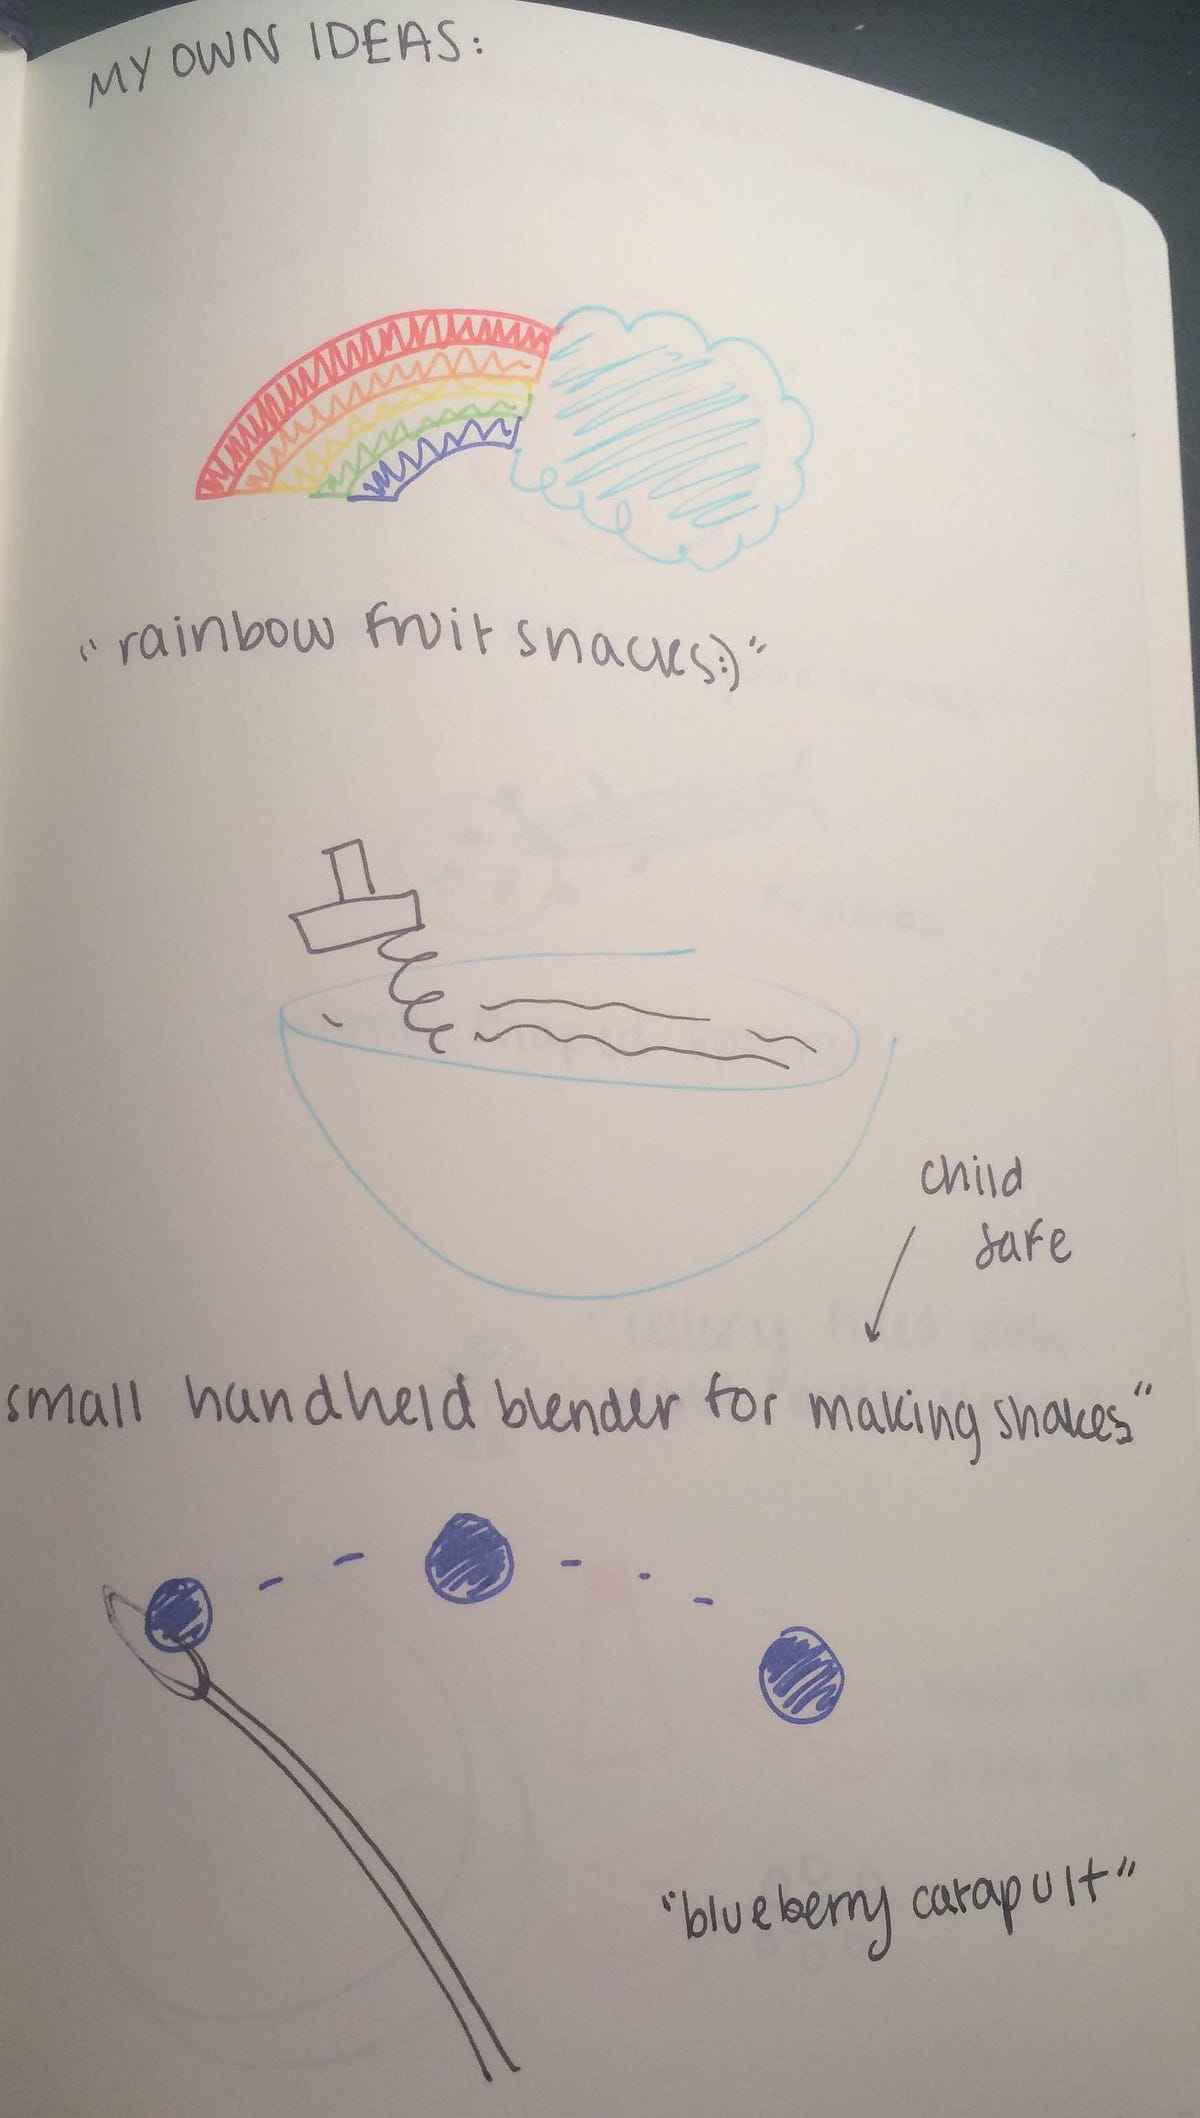 MY OWN IDEAS:
"rainbow fruit snacks:)"
child
safe
small handheld blender for making shakes"
"blueberry catapult"